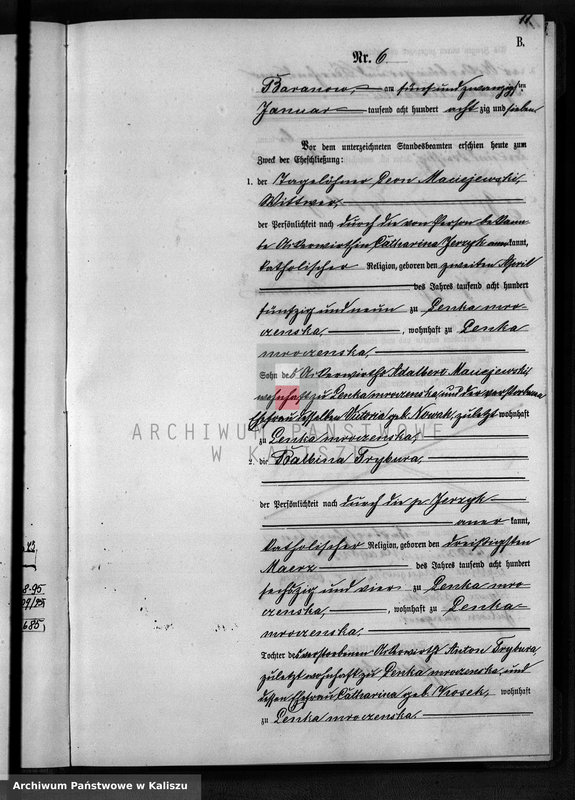 11
B.
Nr. 6
Baranow am fünf und zwanzigsten
Januar tausend acht hundert acht zig und sieben
Vor dem unterzeichneten Standesbeamten erschien heute zum
Zweck der Eheschließung:
1. der Tagelöhner Leon Maciejewski,
Wittwer,
der Persönlichkeit nach durch die von Person bekann-
te Ackerwirthin Catharina Jerzyk aner kannt,
katholischer Religion, geboren den zweiten April
des Jahres tausend acht hundert
fünfzig und neun zu Lenka mro-
czenska, wohnhaft zu Lenka
mroczenska,
Sohn des Ackerwirths Adalbert Maciejewski,
wohnhaft zu Lenka mroczenska, und der verstorbenen
Ehefrau desselben Victoria geb. Nowak, zuletzt wohnhaft
zu Lenka mroczenska,
2. die Balbina Trybura,
der Persönlichkeit nach durch die p Jerzyk
aner kannt,
katholischer Religion, geboren den dreißigsten
Maerz des Jahres tausend acht hundert
sechszig und vier zu Lenka mro
czenska, wohnhaft zu Lenka
mroczenska,
Tochter des verstorbenen Ackerwirths Anton Trybura,
zuletzt wohnhaft zu Lenka mroczenska, und
dessen Ehefrau Catharina geb. wohnhaft
zu Lenka mroczenska.
ARCHIWUM PAŃSTWOWE
W KALISZU
8.95
685
Archiwum Państwowe w Kaliszu